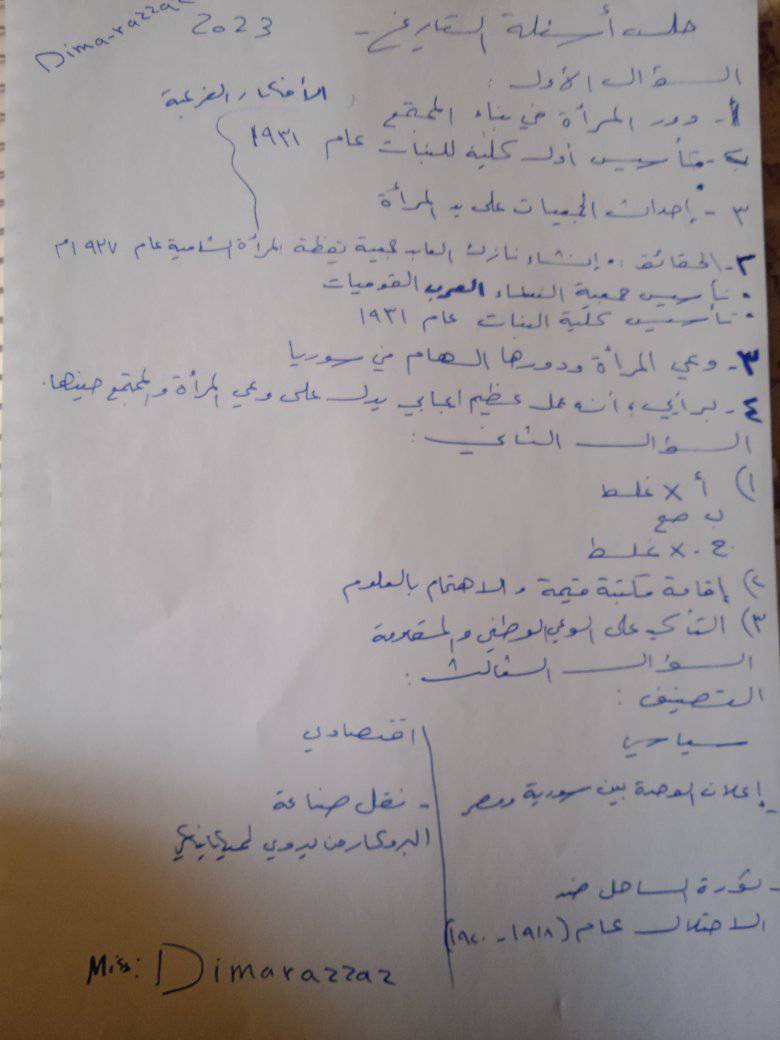 Dima-razzaz
حل أسئلة التاريخ - 2023
السؤال الأول:
الأفكار الفرعية
أ- دور المرأة في بناء المجتمع
ب- تأسيس أول كلية للبنات عام ١٩٣١
٣- إحداث الجمعيات على يد المرأة
٢- الحقائق: • إنشاء نازك العابد جمعية يقظة المرأة الشامية عام ١٩٢٧م
• تأسيس جمعية النساء العرب القوميات
• تأسيس كلية البنات عام ١٩٣١
٣- وعي المرأة ودورها الهام في سوريا
٤- برأيي، أنه عمل عظيم ايجابي يدل على وعي المرأة والمجتمع حينها.
السؤال الثاني:
١) أ X غلط
ب صح
ج. X غلط
٢) إقامة مكتبة قيمة والاهتمام بالعلوم
٣) التأكيد على الوعي الوطني والمقاومة
السؤال الثالث:
التصنيف:
سياسي
- إعلان الوحدة بين سورية ومصر
- ثورة الساحل ضد
الاحتلال عام (١٩١٨ - ١٩٢٠)
اقتصادي
- نقل صناعة
البروكار من يدوي لميكانيكي
Miss: Dimarazzaz